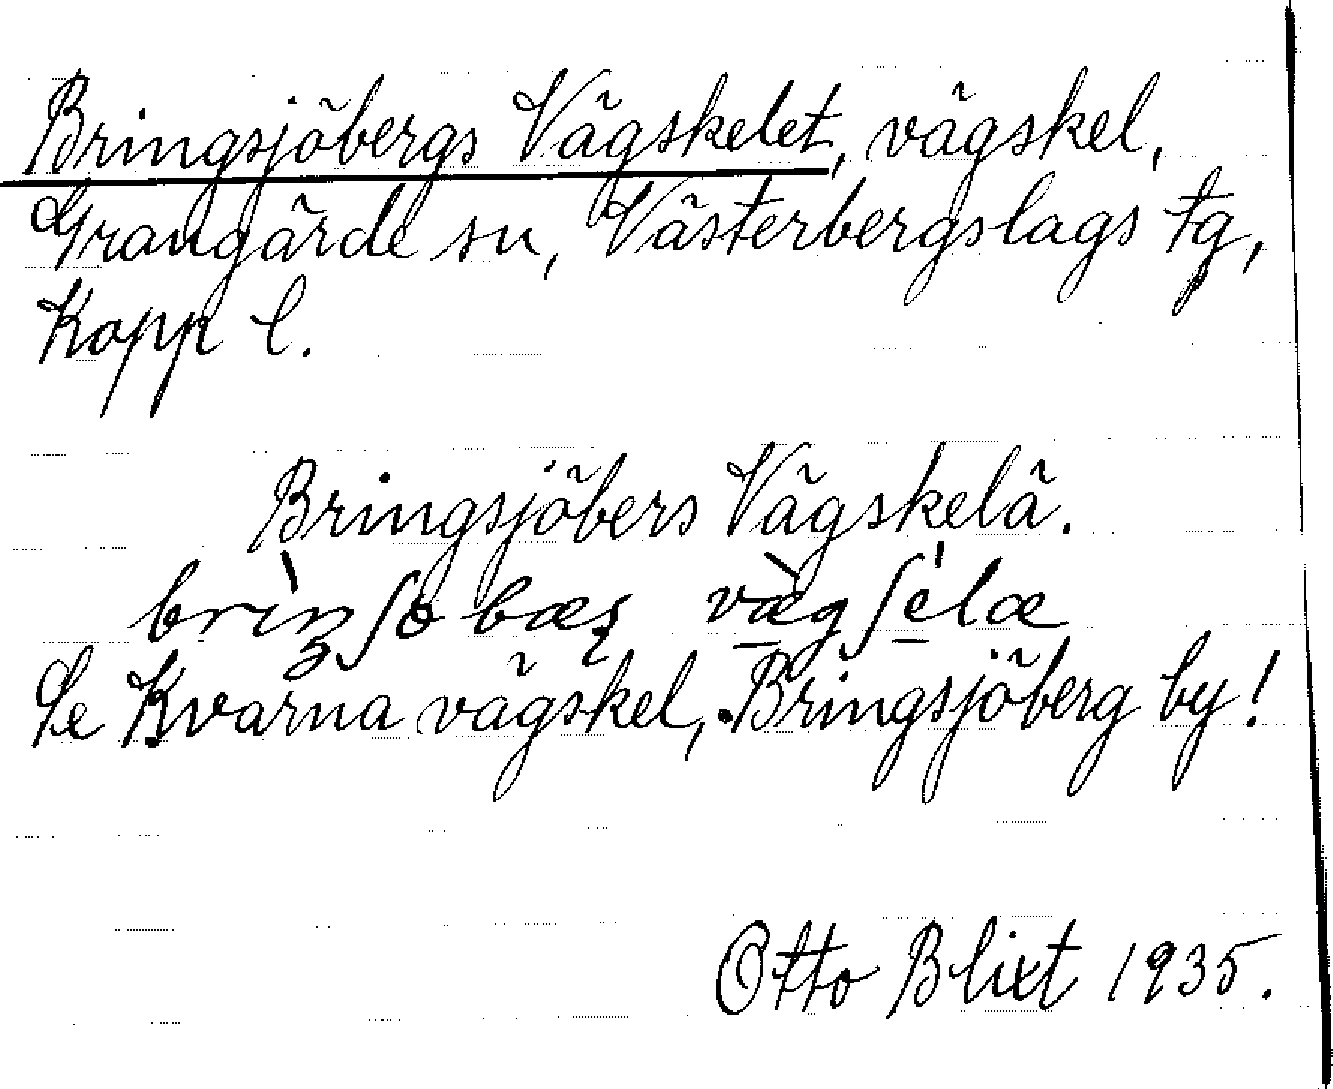 Bringsjöbergs Vägskelet, vägskel,
Grangärde sn, Västerbergslags tg,
Kopp l.
Bringsjöbers Vägskelä.
brìŋʃɵbæʂ væ̀gʃélæ
Se Kvarna vägskel, Bringsjöberg by!
Otto Blixt 1935.